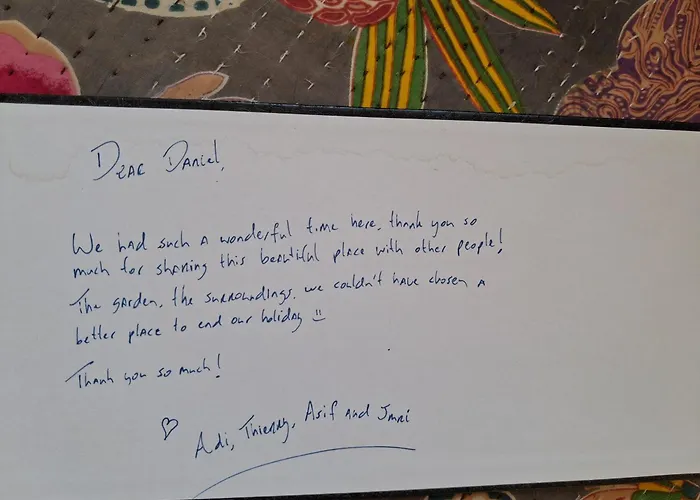 Dear Daniel,
We had such a wonderful time here, thank you so
much for sharing this beautiful place with other people!
The garden, the surroundings, we couldn't have chosen a
better place to end our holiday :)
Thank you so much!
♡ Adi, Thierry, Asif and Imri